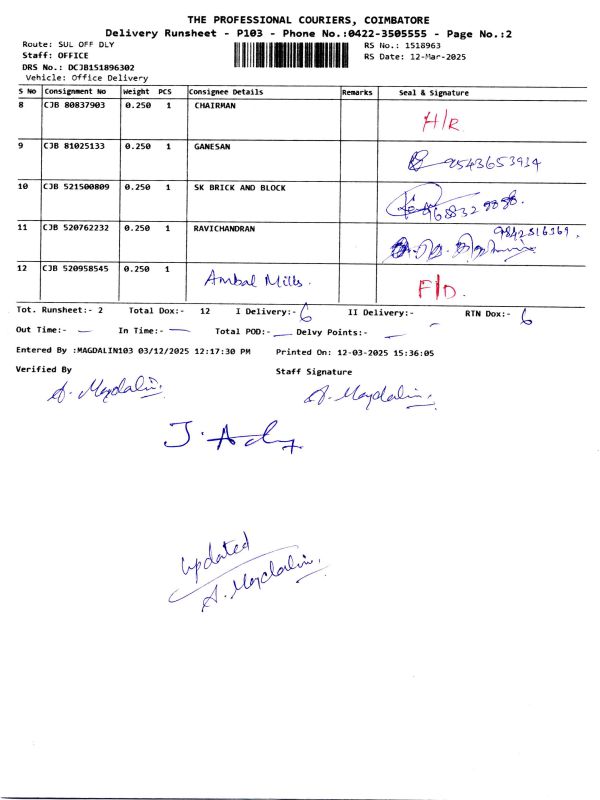 THE PROFESSIONAL COURIERS, COIMBATORE
Delivery Runsheet - P103 - Phone No.:0422-3505555 - Page No.:2
Route: SUL OFF DLY RS No.: 1518963
Staff: OFFICE RS Date: 12-Mar-2025
DRS No.: DCJB151896302
Vehicle: Office Delivery
S No Consignment No Weight PCS Consignee Details Remarks Seal & Signature
8 CJB 80837903 0.250 1 CHAIRMAN H/R
9 CJB 81025133 0.250 1 GANESAN 9543653914
10 CJB 521500809 0.250 1 SK BRICK AND BLOCK
11 CJB 520762232 0.250 1 RAVICHANDRAN 9842816369
12 CJB 520958545 0.250 1 Ambal Mills. F/D.
Tot. Runsheet:- 2 Total Dox:- 12 I Delivery:- 6 II Delivery:- — RTN Dox:- 6
Out Time:- — In Time:- — Total POD:- — Delvy Points:- —
Entered By :MAGDALIN103 03/12/2025 12:17:30 PM Printed On: 12-03-2025 15:36:05
Verified By Staff Signature
A. Magdalin. A. Magdalin.
updated
A. Magdalin.